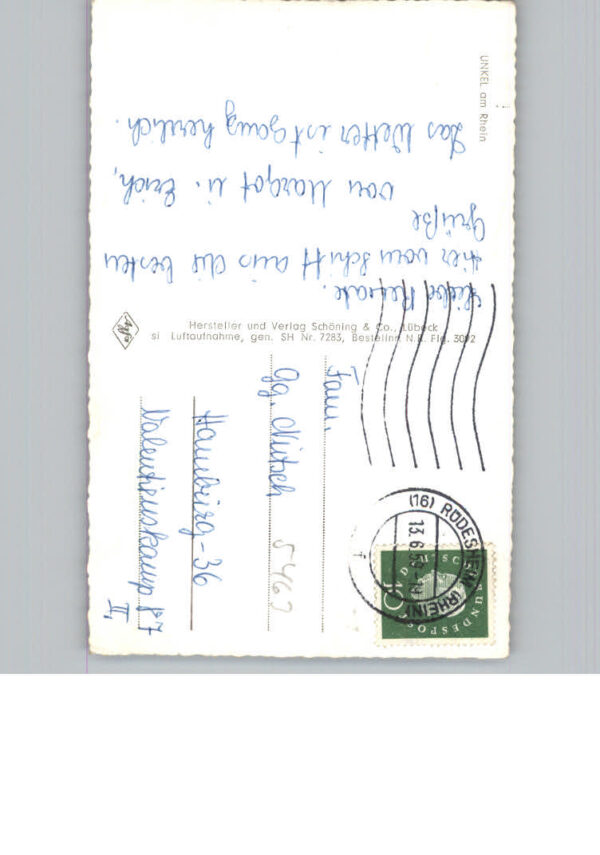 UNKEL am Rhein
Liebe Renate.
Hier vom Schiff aus die besten
Grüße
von Margot u. Erich,
Das Wetter ist ganz herrlich.
Agfa
Hersteller und Verlag Schöning & Co., Lübeck
si Luftaufnahme, gen. SH Nr. 7283, Bestellnr. N.R. Flg. 3092
(16) RÜDESHEIM (RHEIN)
13.6.
DEUTSCHE BUNDESPOST
10
Fam.
Gg. Nitsch
Hamburg-36
Valentinskamp 87
II,
5462